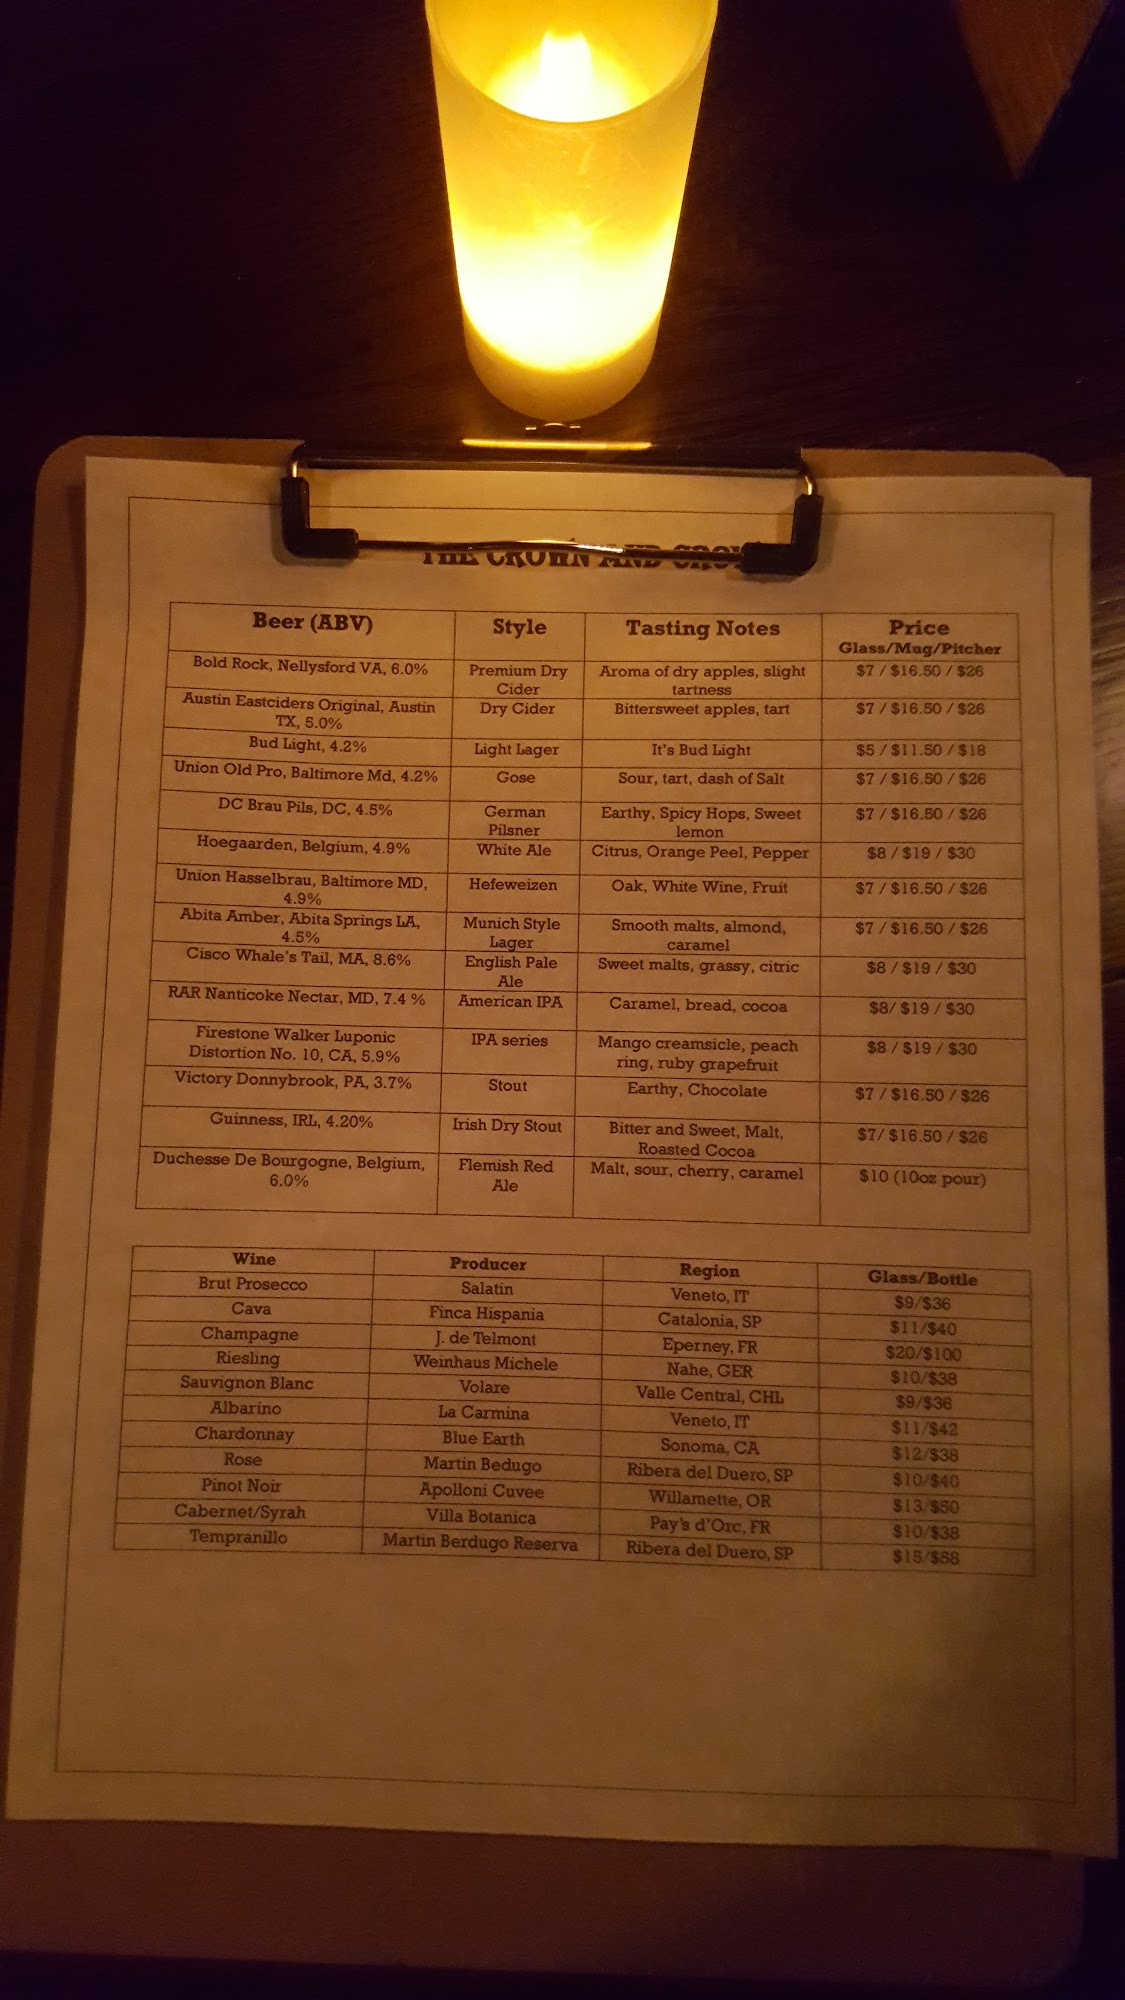 THE CROWN AND
Beer (ABV) Style Tasting Notes Price
Glass/Mug/Pitcher
Bold Rock, Nellysford VA, 6.0% Premium Dry Aroma of dry apples, slight $7 / $16.50 / $26
Cider tartness
Austin Eastciders Original, Austin Dry Cider Bittersweet apples, tart $7 / $16.50 / $26
TX, 5.0%
Bud Light, 4.2% Light Lager It's Bud Light $5 / $11.50 / $18
Union Old Pro, Baltimore Md, 4.2% Gose Sour, tart, dash of Salt $7 / $16.50 / $26
DC Brau Pils, DC, 4.5% German Earthy, Spicy Hops, Sweet $7 / $16.50 / $26
Pilsner lemon
Hoegaarden, Belgium, 4.9% White Ale Citrus, Orange Peel, Pepper $8 / $19 / $30
Union Hasselbrau, Baltimore MD, Hefeweizen Oak, White Wine, Fruit $7 / $16.50 / $26
4.9%
Abita Amber, Abita Springs LA, Munich Style Smooth malts, almond, $7 / $16.50 / $26
4.5% Lager caramel
Cisco Whale's Tail, MA, 8.6% English Pale Sweet malts, grassy, citric $8 / $19 / $30
Ale
RAR Nanticoke Nectar, MD, 7.4 % American IPA Caramel, bread, cocoa $8/ $19 / $30
Firestone Walker Luponic IPA series Mango creamsicle, peach $8 / $19 / $30
Distortion No. 10, CA, 5.9% ring, ruby grapefruit
Victory Donnybrook, PA, 3.7% Stout Earthy, Chocolate $7 / $16.50 / $26
Guinness, IRL, 4.20% Irish Dry Stout Bitter and Sweet, Malt, $7/ $16.50 / $26
Roasted Cocoa
Duchesse De Bourgogne, Belgium, Flemish Red Malt, sour, cherry, caramel $10 (10oz pour)
6.0% Ale
Wine Producer Region Glass/Bottle
Brut Prosecco Salatin Veneto, IT $9/$36
Cava Finca Hispania Catalonia, SP $11/$40
Champagne J. de Telmont Eperney, FR $20/$100
Riesling Weinhaus Michele Nahe, GER $10/$38
Sauvignon Blanc Volare Valle Central, CHL $9/$36
Albarino La Carmina Veneto, IT $11/$42
Chardonnay Blue Earth Sonoma, CA $12/$38
Rose Martin Bedugo Ribera del Duero, SP $10/$40
Pinot Noir Apolloni Cuvee Willamette, OR $13/$50
Cabernet/Syrah Villa Botanica Pay's d'Orc, FR $10/$38
Tempranillo Martin Berdugo Reserva Ribera del Duero, SP $15/$58